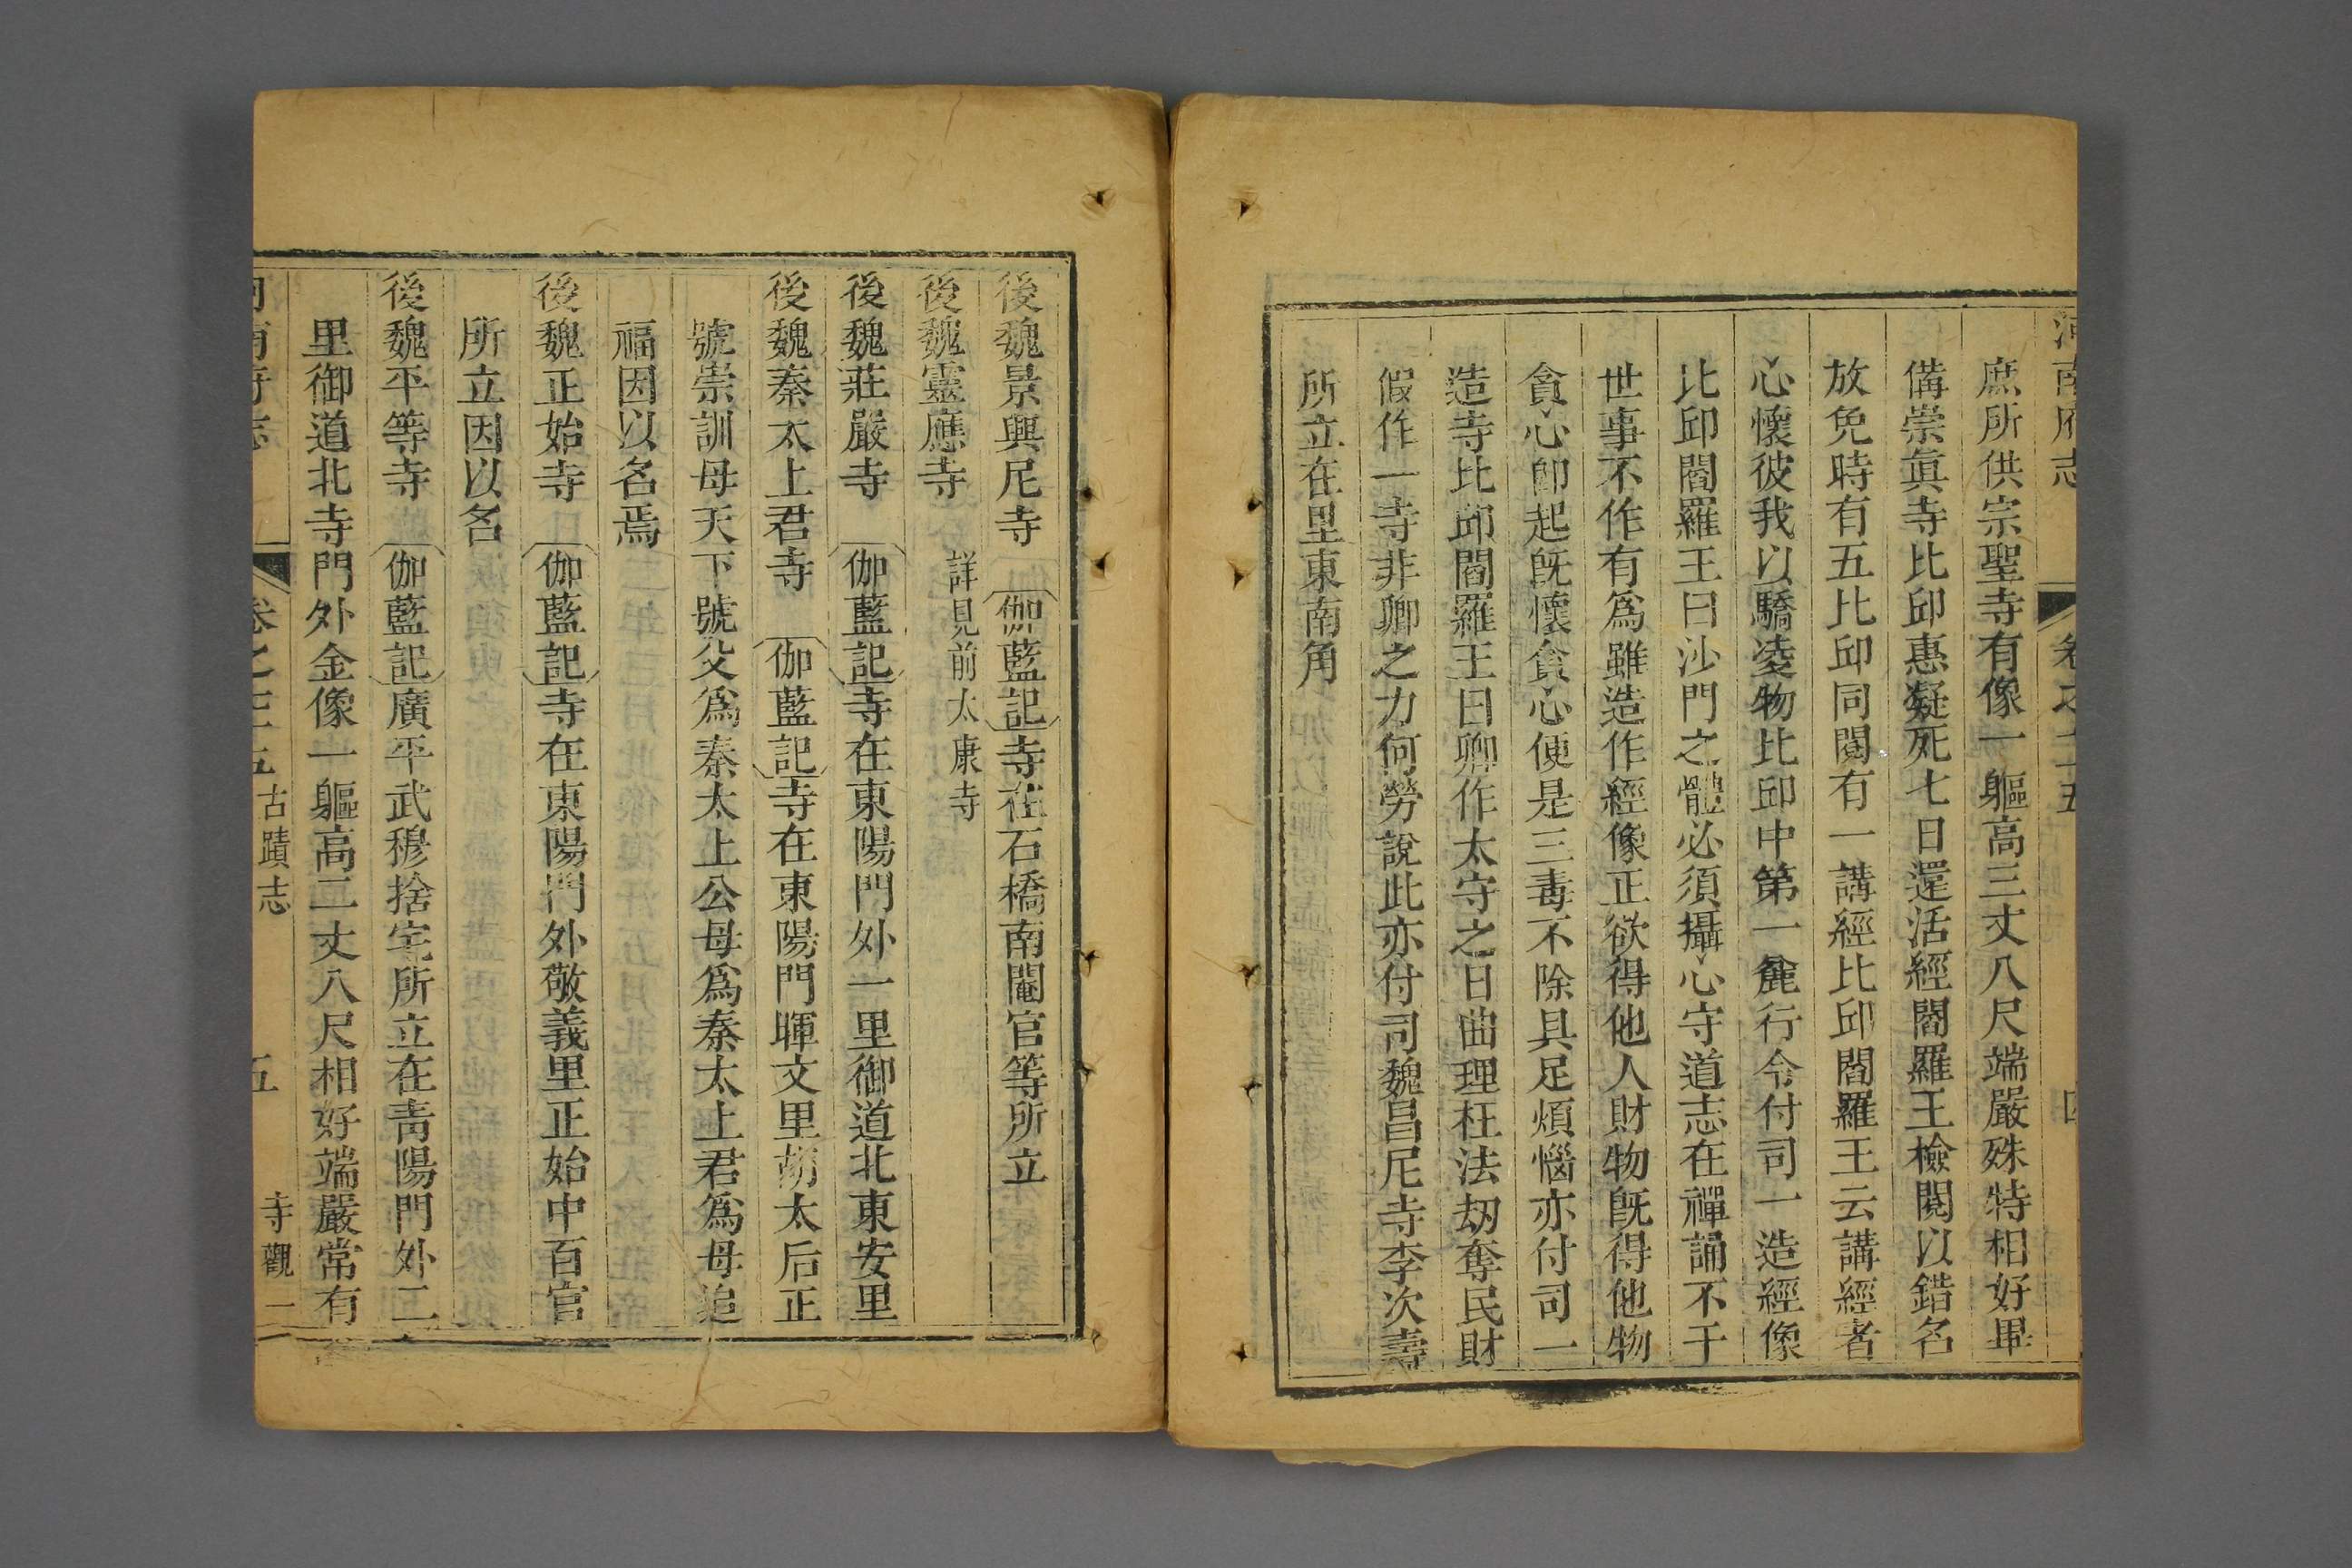 河南府志　卷之七五　四
庶所供宗聖寺有像一軀高三丈八尺端嚴殊特相好畢
備崇眞寺比邱惠凝死七日還活經閻羅王檢閱以錯名
放免時有五比邱同閱有一講經比邱閻羅王云講經者
心懷彼我以驕凌物比邱中第一麄行令付司一造經像
比邱閻羅王曰沙門之體必須攝心守道志在禪誦不干
世事不作有爲雖造作經像正欲得他人財物旣得他物
貪心卽起旣懷貪心便是三毒不除具足煩惱亦付司一
造寺比邱閻羅王曰卿作太守之日曲理枉法刼奪民財
假作一寺非卿之力何勞說此亦付司魏昌尼寺李次壽
所立在里東南角
後魏景興尼寺　伽藍記寺在石橋南閹官等所立
後魏靈應寺　詳見前太康寺
後魏莊嚴寺　伽藍記寺在東陽門外一里御道北東安里
後魏秦太上君寺　伽藍記寺在東陽門暉文里胡太后正
號崇訓母天下號父爲秦太上公母爲秦太上君爲母追
福因以名焉
後魏正始寺　伽藍記寺在東陽門外敬義里正始中百官
所立因以名
後魏平等寺　伽藍記廣平武穆捨宅所立在靑陽門外二
里御道北寺門外金像一軀高二丈八尺相好端嚴常有
河南府志　卷之七五　古蹟志　五　寺觀一